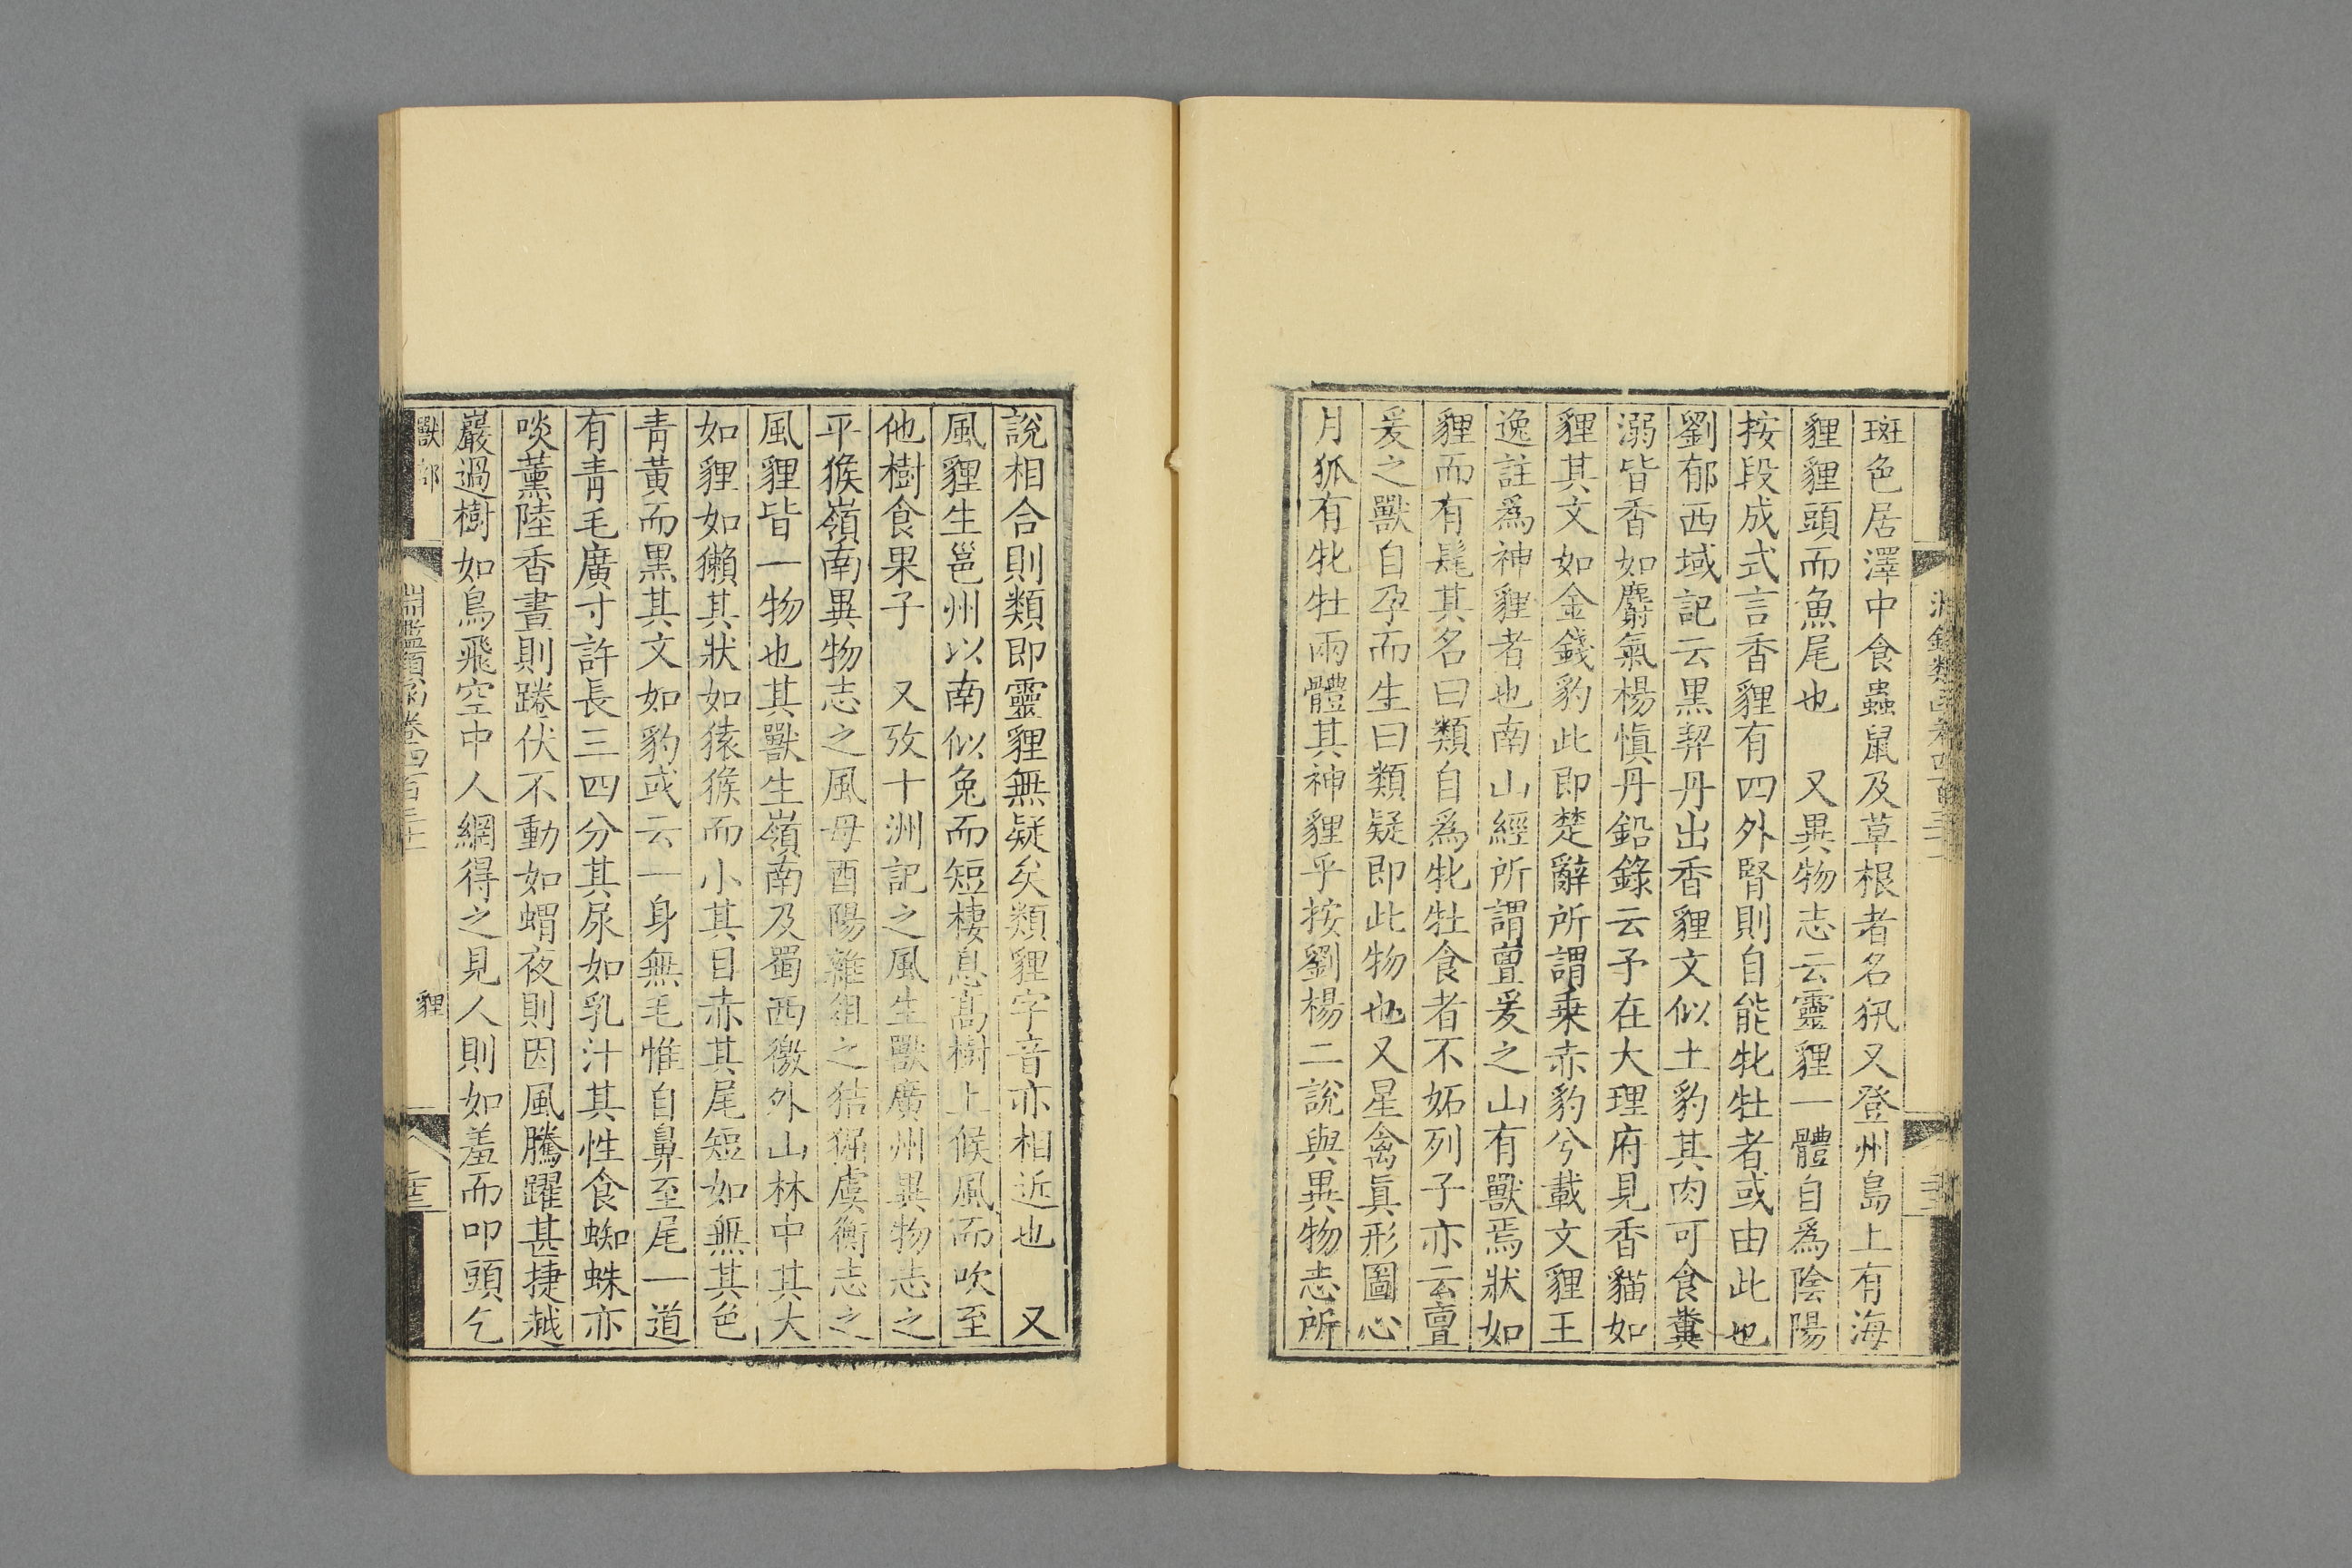 斑色居澤中食蟲鼠及草根者名犼又登州島上有海
貍貍頭而魚尾也　又異物志云靈貍一體自爲陰陽
按段成式言香貍有四外腎則自能牝牡者或由此也
劉郁西域記云黑契丹出香貍文似土豹其肉可食糞
溺皆香如麝氣楊愼丹鉛錄云予在大理府見香貓如
貍其文如金錢豹此即楚辭所謂乗赤豹兮載文貍王
逸註爲神貍者也南山經所謂亶爰之山有獸焉狀如
貍而有髦其名曰類自爲牝牡食者不妬列子亦云亶
爰之獸自孕而生曰類疑即此物也又星禽眞形圖心
月狐有牝牡兩體其神貍乎按劉楊二說與異物志所
說相合則類即靈貍無疑矣類貍字音亦相近也　又
風貍生邕州以南似兔而短棲息高樹上候風而吹至
他樹食果子　又攷十洲記之風生獸廣州異物志之
平猴嶺南異物志之風母酉陽雜俎之狤𤟎虞衡志之
風貍皆一物也其獸生嶺南及蜀西徼外山林中其大
如貍如獺其狀如猿猴而小其目赤其尾短如無其色
青黃而黑其文如豹或云一身無毛惟自鼻至尾一道
有青毛廣寸許長三四分其尿如乳汁其性食蜘蛛亦
啖薰陸香晝則踡伏不動如蝟夜則因風騰躍甚捷越
巖過樹如鳥飛空中人網得之見人則如羞而叩頭乞
獸部
淵鑑類函卷四百三十
貍